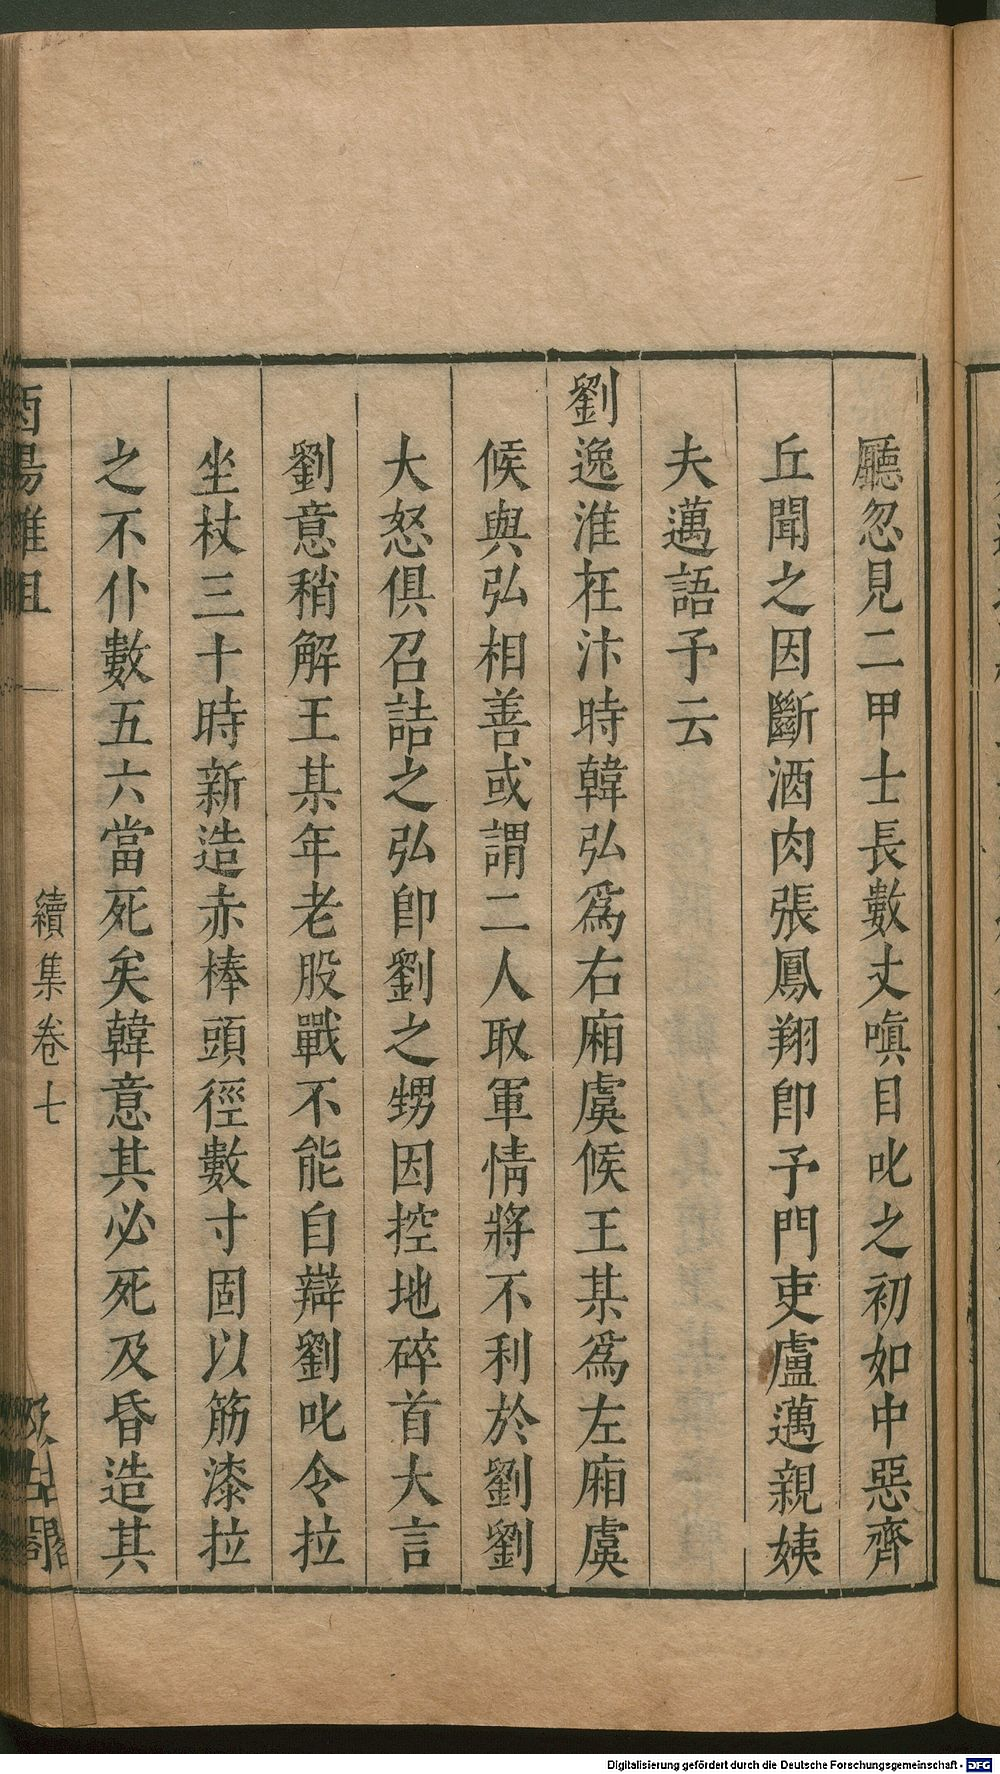 廳忽見二甲士長數丈嗔目叱之初如中惡齊
丘聞之因斷酒肉張鳳翔卽予門吏盧邁親姨
夫邁語予云
劉逸淮在汴時韓弘爲右廂虞候王某爲左廂虞
候與弘相善或謂二人取軍情將不利於劉劉
大怒俱召詰之弘卽劉之甥因控地碎首大言
劉意稍解王某年老股戰不能自辯劉叱令拉
坐杖三十時新造赤棒頭徑數寸固以筋漆拉
之不仆數五六當死矣韓意其必死及昏造其
酉陽雜俎
續集卷七
汲古閣
Digitalisierung gefördert durch die Deutsche Forschungsgemeinschaft - DFG